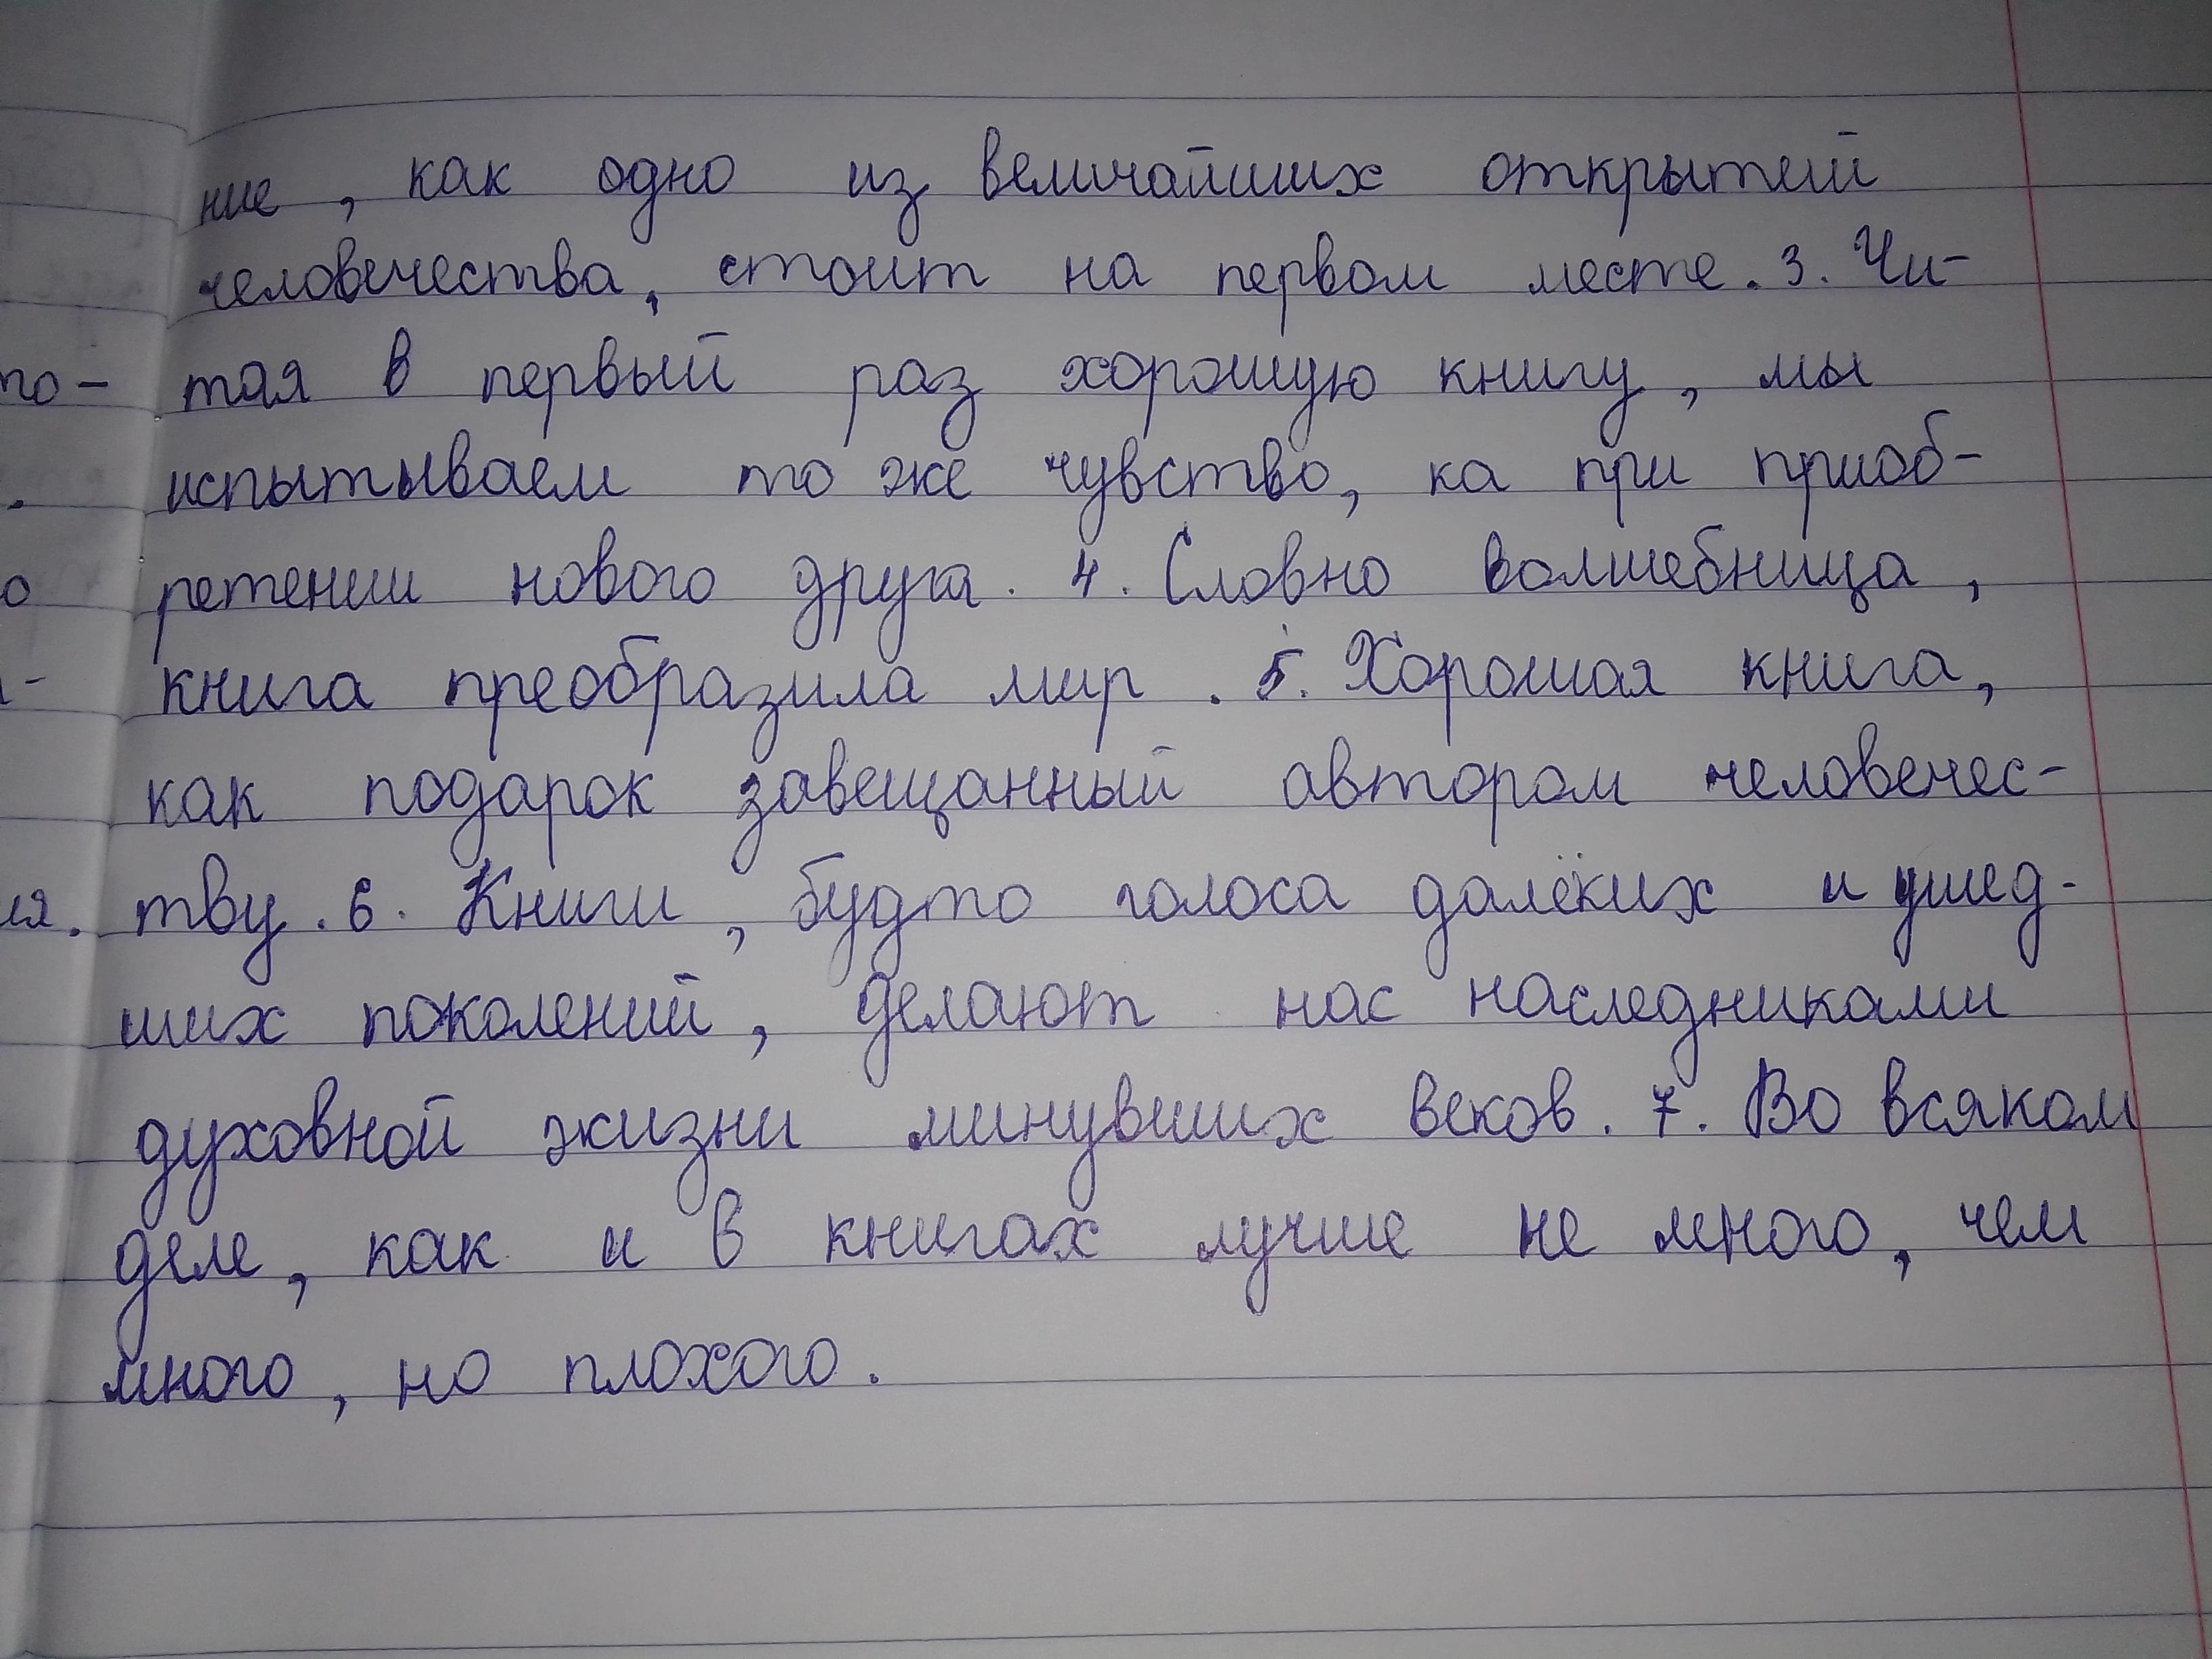 ние, как одно из величайших открытей
человечества, стоит на первом месте. 3. Чи-
тая в первый раз хорошую книгу, мы
испытываем то же чувство, ка при приоб-
ретении нового друга. 4. Словно волшебница,
книга преобразила мир. 5. Хорошая книга,
как подарок завещанный автором человечес-
тву. 6. Книги, будто голоса далёких и ушед-
ших поколений, делают нас наследниками
духовной жизни минувших веков. 7. Во всяком
деле, как и в книгах лучше не много, чем
много, но плохого.